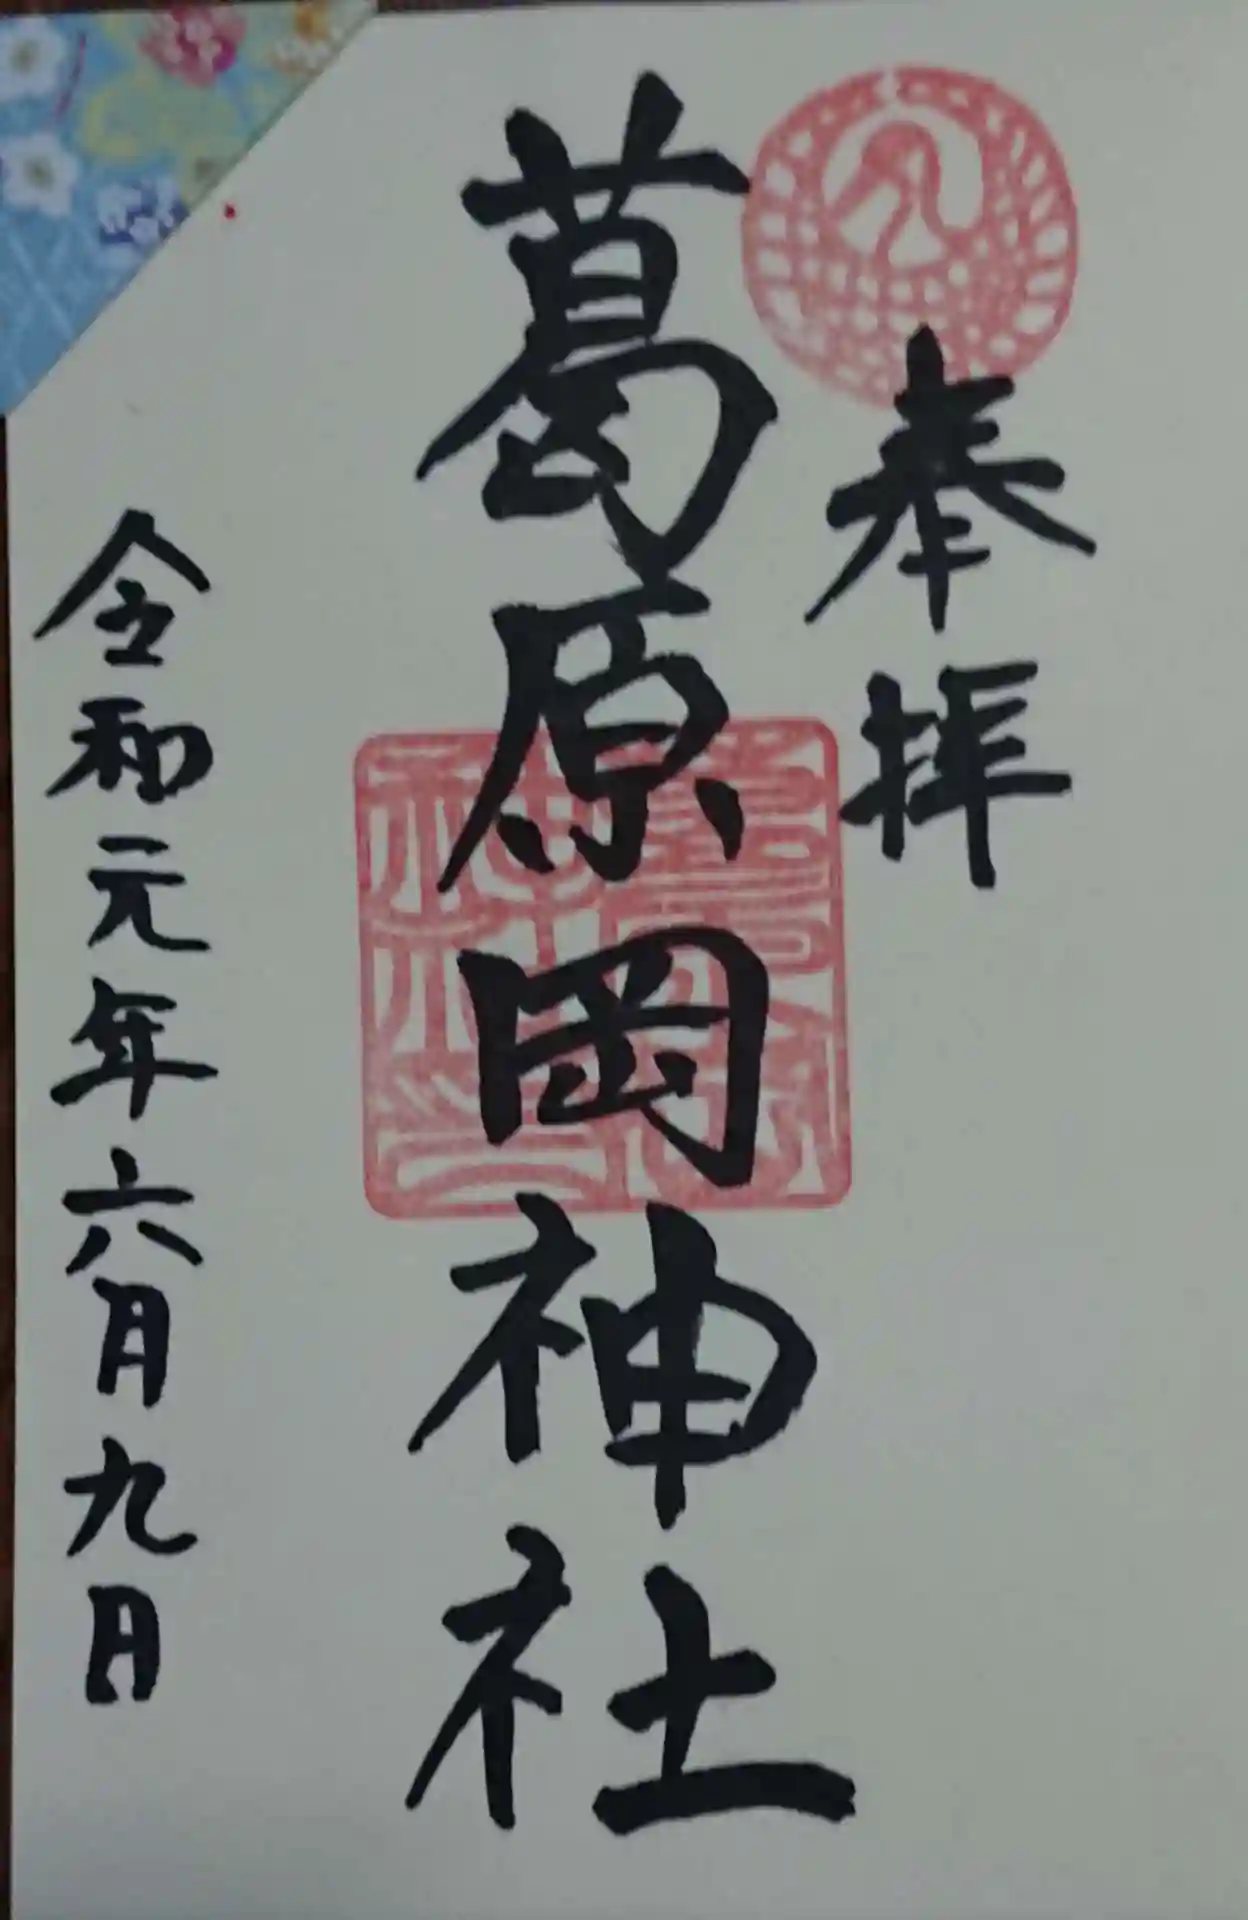 奉拝
葛原岡神社
令和元年六月九日